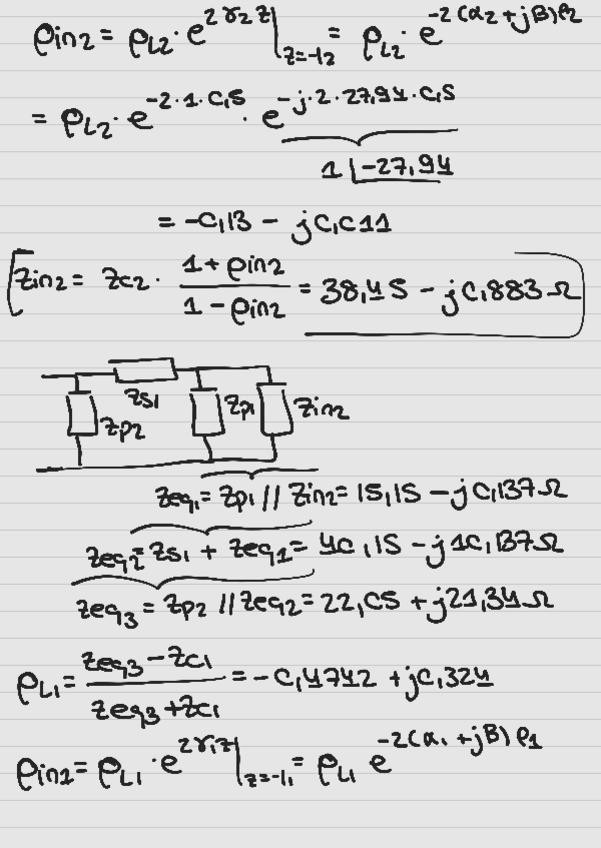 ρin2 = ρL2 · e^{2γ2 z} |_{z=-l2} = ρL2 · e^{-2(α2+jβ)ℓ2}
= ρL2 · e^{-2·1·0,5} · e^{-j·2·27,94·0,5}
1 ∠-27,94
= -0,13 - j0,011
Zin2 = Zc2 · (1+ρin2)/(1-ρin2) = 38,45 - j0,883Ω
Zs1
Zp2 Zp1 Zin2
Zeq1 = Zp1 // Zin2 = 15,15 - j0,137Ω
Zeq2 = Zs1 + Zeq1 = 40,15 - j10,137Ω
Zeq3 = Zp2 // Zeq2 = 22,05 + j21,34Ω
ρL1 = (Zeq3 - Zc1)/(Zeq3 + Zc1) = -0,4742 + j0,324
ρin1 = ρL1 · e^{2γ1 z} |_{z=-l1} = ρL1 e^{-2(α1+jβ)ℓ1}